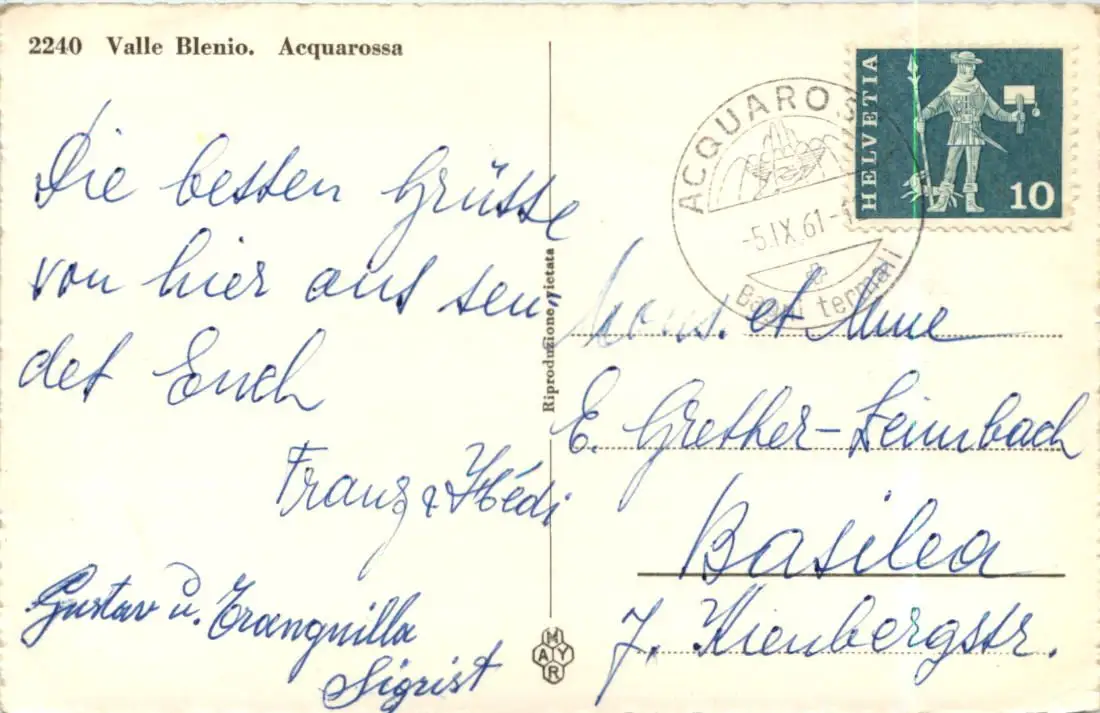 2240 Valle Blenio. Acquarossa
Die besten Grüsse
von hier aus sen„
det Euch
Franz & Hédi
Gustav u. Tranquilla
Sigrist
Riproduzione vietata
MAYR
HELVETIA
10
ACQUAROS
-5.IX.61-1
Bagni termali
Mons. et Mme
E. Grether-Leimbach
Basilea
7. Kienbergstr.